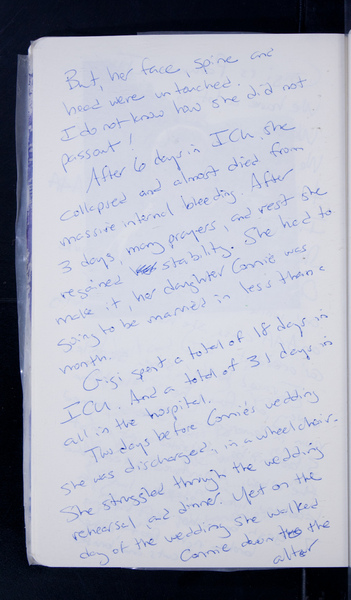 But, her face, spine and
head were untouched.
I do not know how she did not
passout!
After 6 days in ICU, she
collapsed and almost died from
massive internal bleeding. After
3 days, many prayers, and rest she
regained stability. She had to
make it, her daughter Connie was
going to be married in less than a
month.
Gigi spent a total of 18 days in
ICU. And a total of 31 days in
all in the hospital.
Two days before Connie's wedding
she was discharged, in a wheelchair.
She struggled through the wedding
rehearsal and dinner. Yet on the
day of the wedding she walked
Connie down the
alter